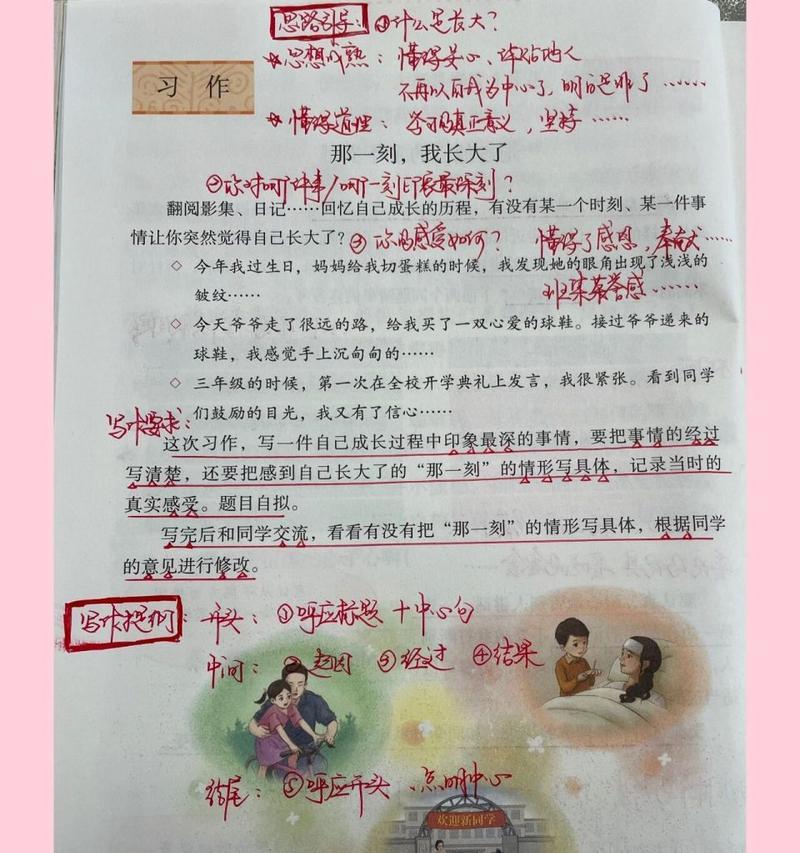 思路引导：①什么是长大？
*思想成熟：懂得关心、体贴他人
不再以自我为中心了，明白是非了……
习 作
*懂得道理：学习的真正意义，坚持……
那一刻，我长大了
②你对哪件事/哪一刻印象最深刻？
翻阅影集、日记……回忆自己成长的历程，有没有某一个时刻、某一件事
情让你突然觉得自己长大了？③你的感受如何？ 懂得了感恩，奉献……
◇ 今年我过生日，妈妈给我切蛋糕的时候，我发现她的眼角出现了浅浅的
皱纹…… 班集荣誉感……
◇ 今天爷爷走了很远的路，给我买了一双心爱的球鞋。接过爷爷递来的
球鞋，我感觉手上沉甸甸的……
◇ 三年级的时候，第一次在全校开学典礼上发言，我很紧张。看到同学
写作要求：们鼓励的目光，我又有了信心……
这次习作，写一件自己成长过程中印象最深的事情，要把事情的经过
写清楚，还要把感到自己长大了的“那一刻”的情形写具体，记录当时的
真实感受。题目自拟。
写完后和同学交流，看看有没有把“那一刻”的情形写具体，根据同学
的意见进行修改。
写作提纲：开头：①呼应标题＋中心句
中间：②起因 ③经过 ④结果
结尾：⑤呼应开头、点明中心
欢迎新同学